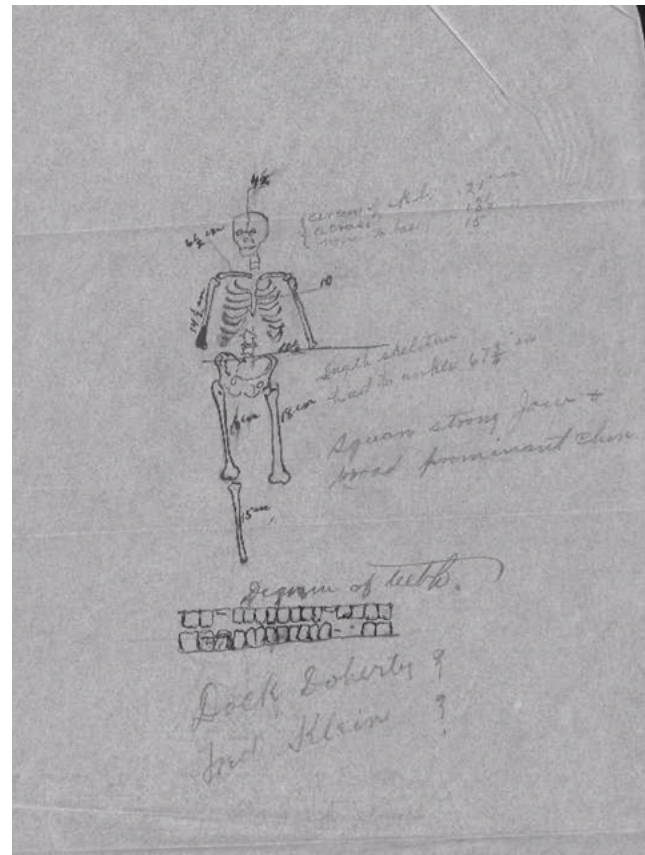 4½
{ circum of skull 21 in
{ across 13½
{ 15
6½ in
10
14½ in
Length skeleton
head to ankle 67¾ in
18 in
18 in
Square strong jaw &
broad prominent chin
15 in
Degram of teeth.
Dock Doherty ?
Fred Klein ?